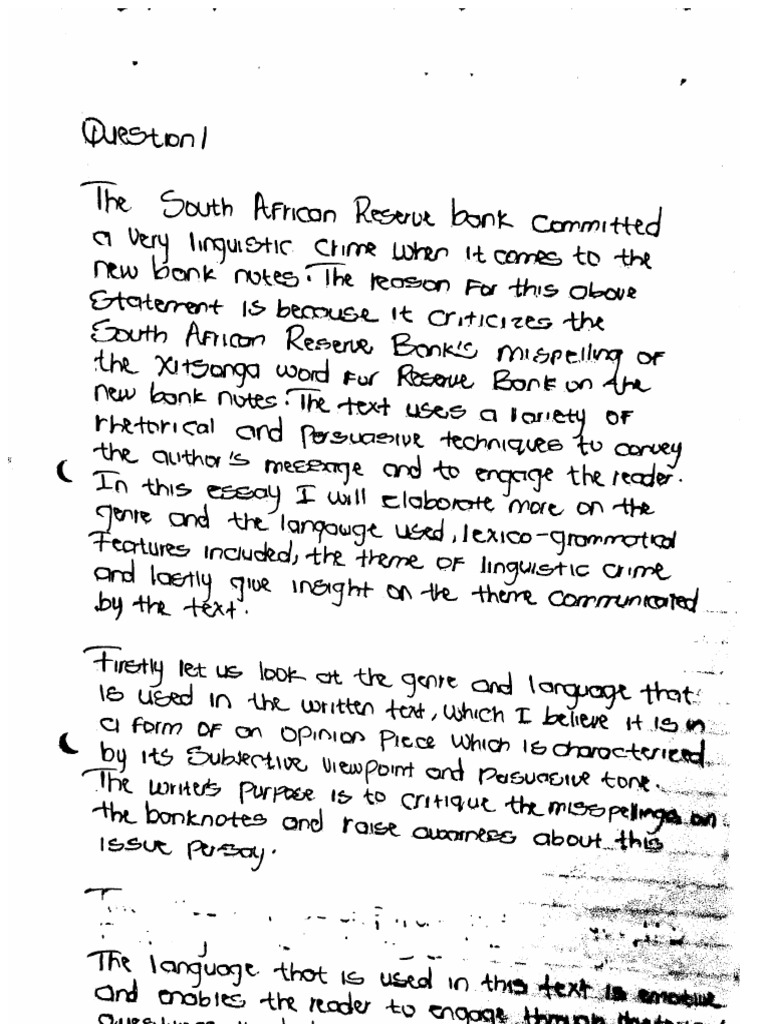 Question 1
The South African Reserve bank committed
a very linguistic crime when it comes to the
new bank notes. The reason for this above
statement is because it criticizes the
South African Reserve Bank's mispelling of
the Xitsonga word for Reserve Bank on the
new bank notes. The text uses a variety of
rhetorical and persuasive techniques to convey
the author's message and to engage the reader.
In this essay I will elaborate more on the
genre and the langauge used, lexico-grammatical
features included, the theme of linguistic crime
and lastly give insight on the theme communicated
by the text.
Firstly let us look at the genre and language that
is used in the written text, which I believe it is in
a form of an opinion piece which is characterized
by its subjective viewpoint and pasuasive tone.
The writers purpose is to critique the misspellings on
the banknotes and raise awarness about this
issue persay.
The language that is used in this text is emotive
and enables the reader to engage through